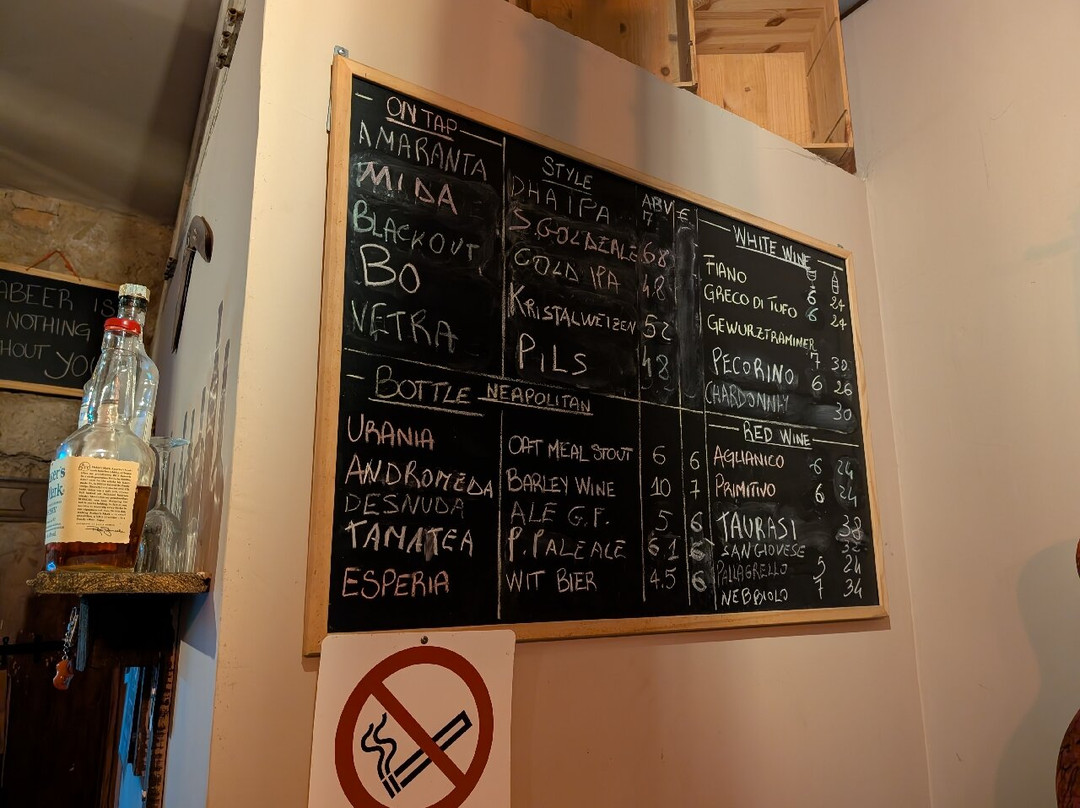 ON TAP STYLE ABV €
AMARANTA DHA IPA 7
MIDA S.GOLDEALE 68
BLACKOUT GOLD IPA 48
BO KRISTALWEIZEN 52
VETRA PILS 48
BOTTLE NEAPOLITAN
URANIA OAT MEAL STOUT 6 6
ANDROMEDA BARLEY WINE 10 7
DESNUDA ALE G.F. 5 6
TAMATEA P. PALE ACE 6.1 6
ESPERIA WIT BIER 4.5 6
WHITE WINE
FIANO 6 24
GRECO DI TUFO 6 24
GEWURZTRAMINER 7 30
PECORINO 6 26
CHARDONNEY 30
RED WINE
AGLIANICO 6 24
PRIMITIVO 6 24
TAURASI 38
SANGIOVESE 32
PALLAGRELLO 5 24
NEBBIOLO 7 34
ABEER IS
NOTHING
HOUT YOU